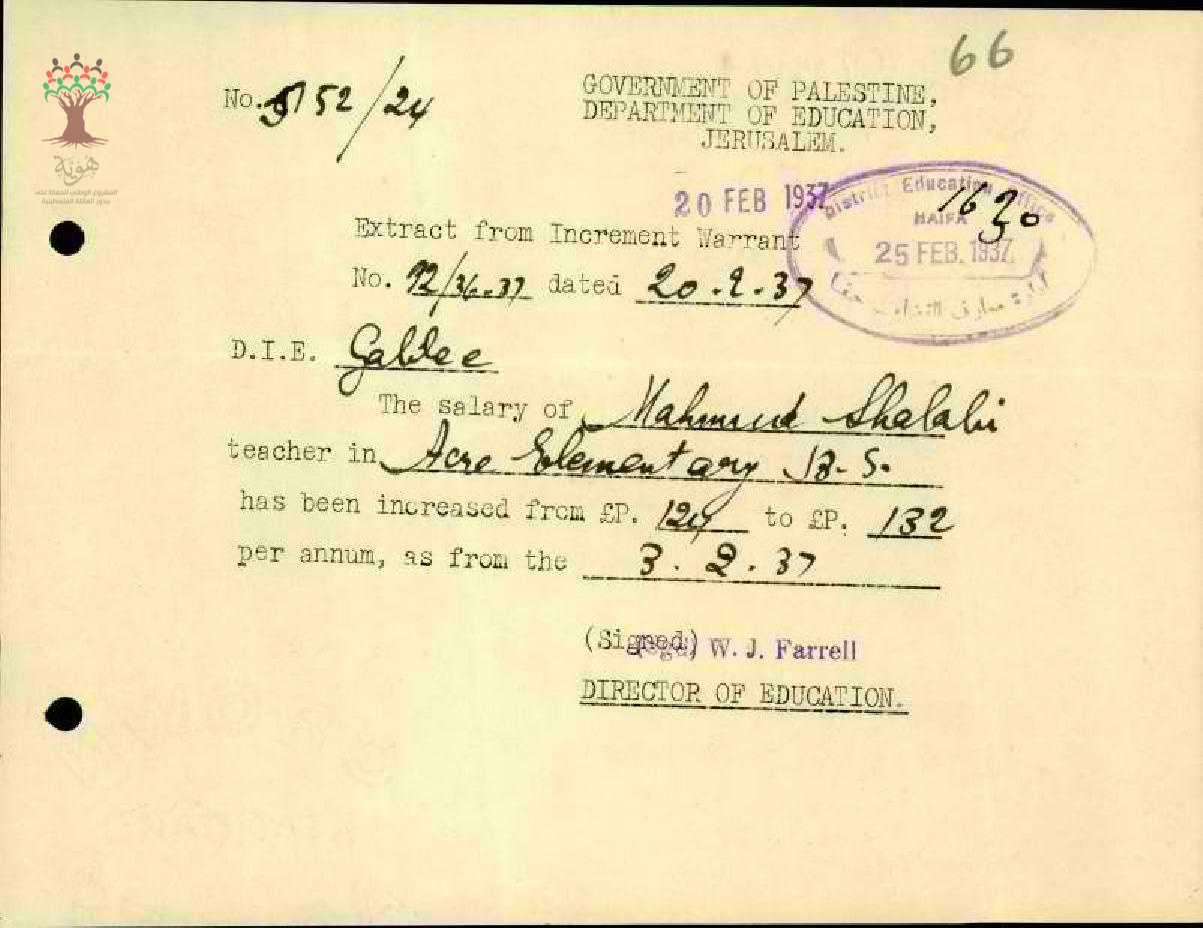 66
No. 5152/24
GOVERNMENT OF PALESTINE,
DEPARTMENT OF EDUCATION,
JERUSALEM.
20 FEB 1937
District Education Office
HAIFA
1630
25 FEB. 1937
Extract from Increment Warrant
No. 72/36-37 dated 20.2.37
D.I.E. Galilee
The salary of Mahmud Shalabi
teacher in Acre Elementary B.S.
has been increased from £P. 124 to £P. 132
per annum, as from the 3.2.37
(Signed) W. J. Farrell
DIRECTOR OF EDUCATION.
هوية
المشروع الوطني للحفاظ على
جذور العائلة الفلسطينية